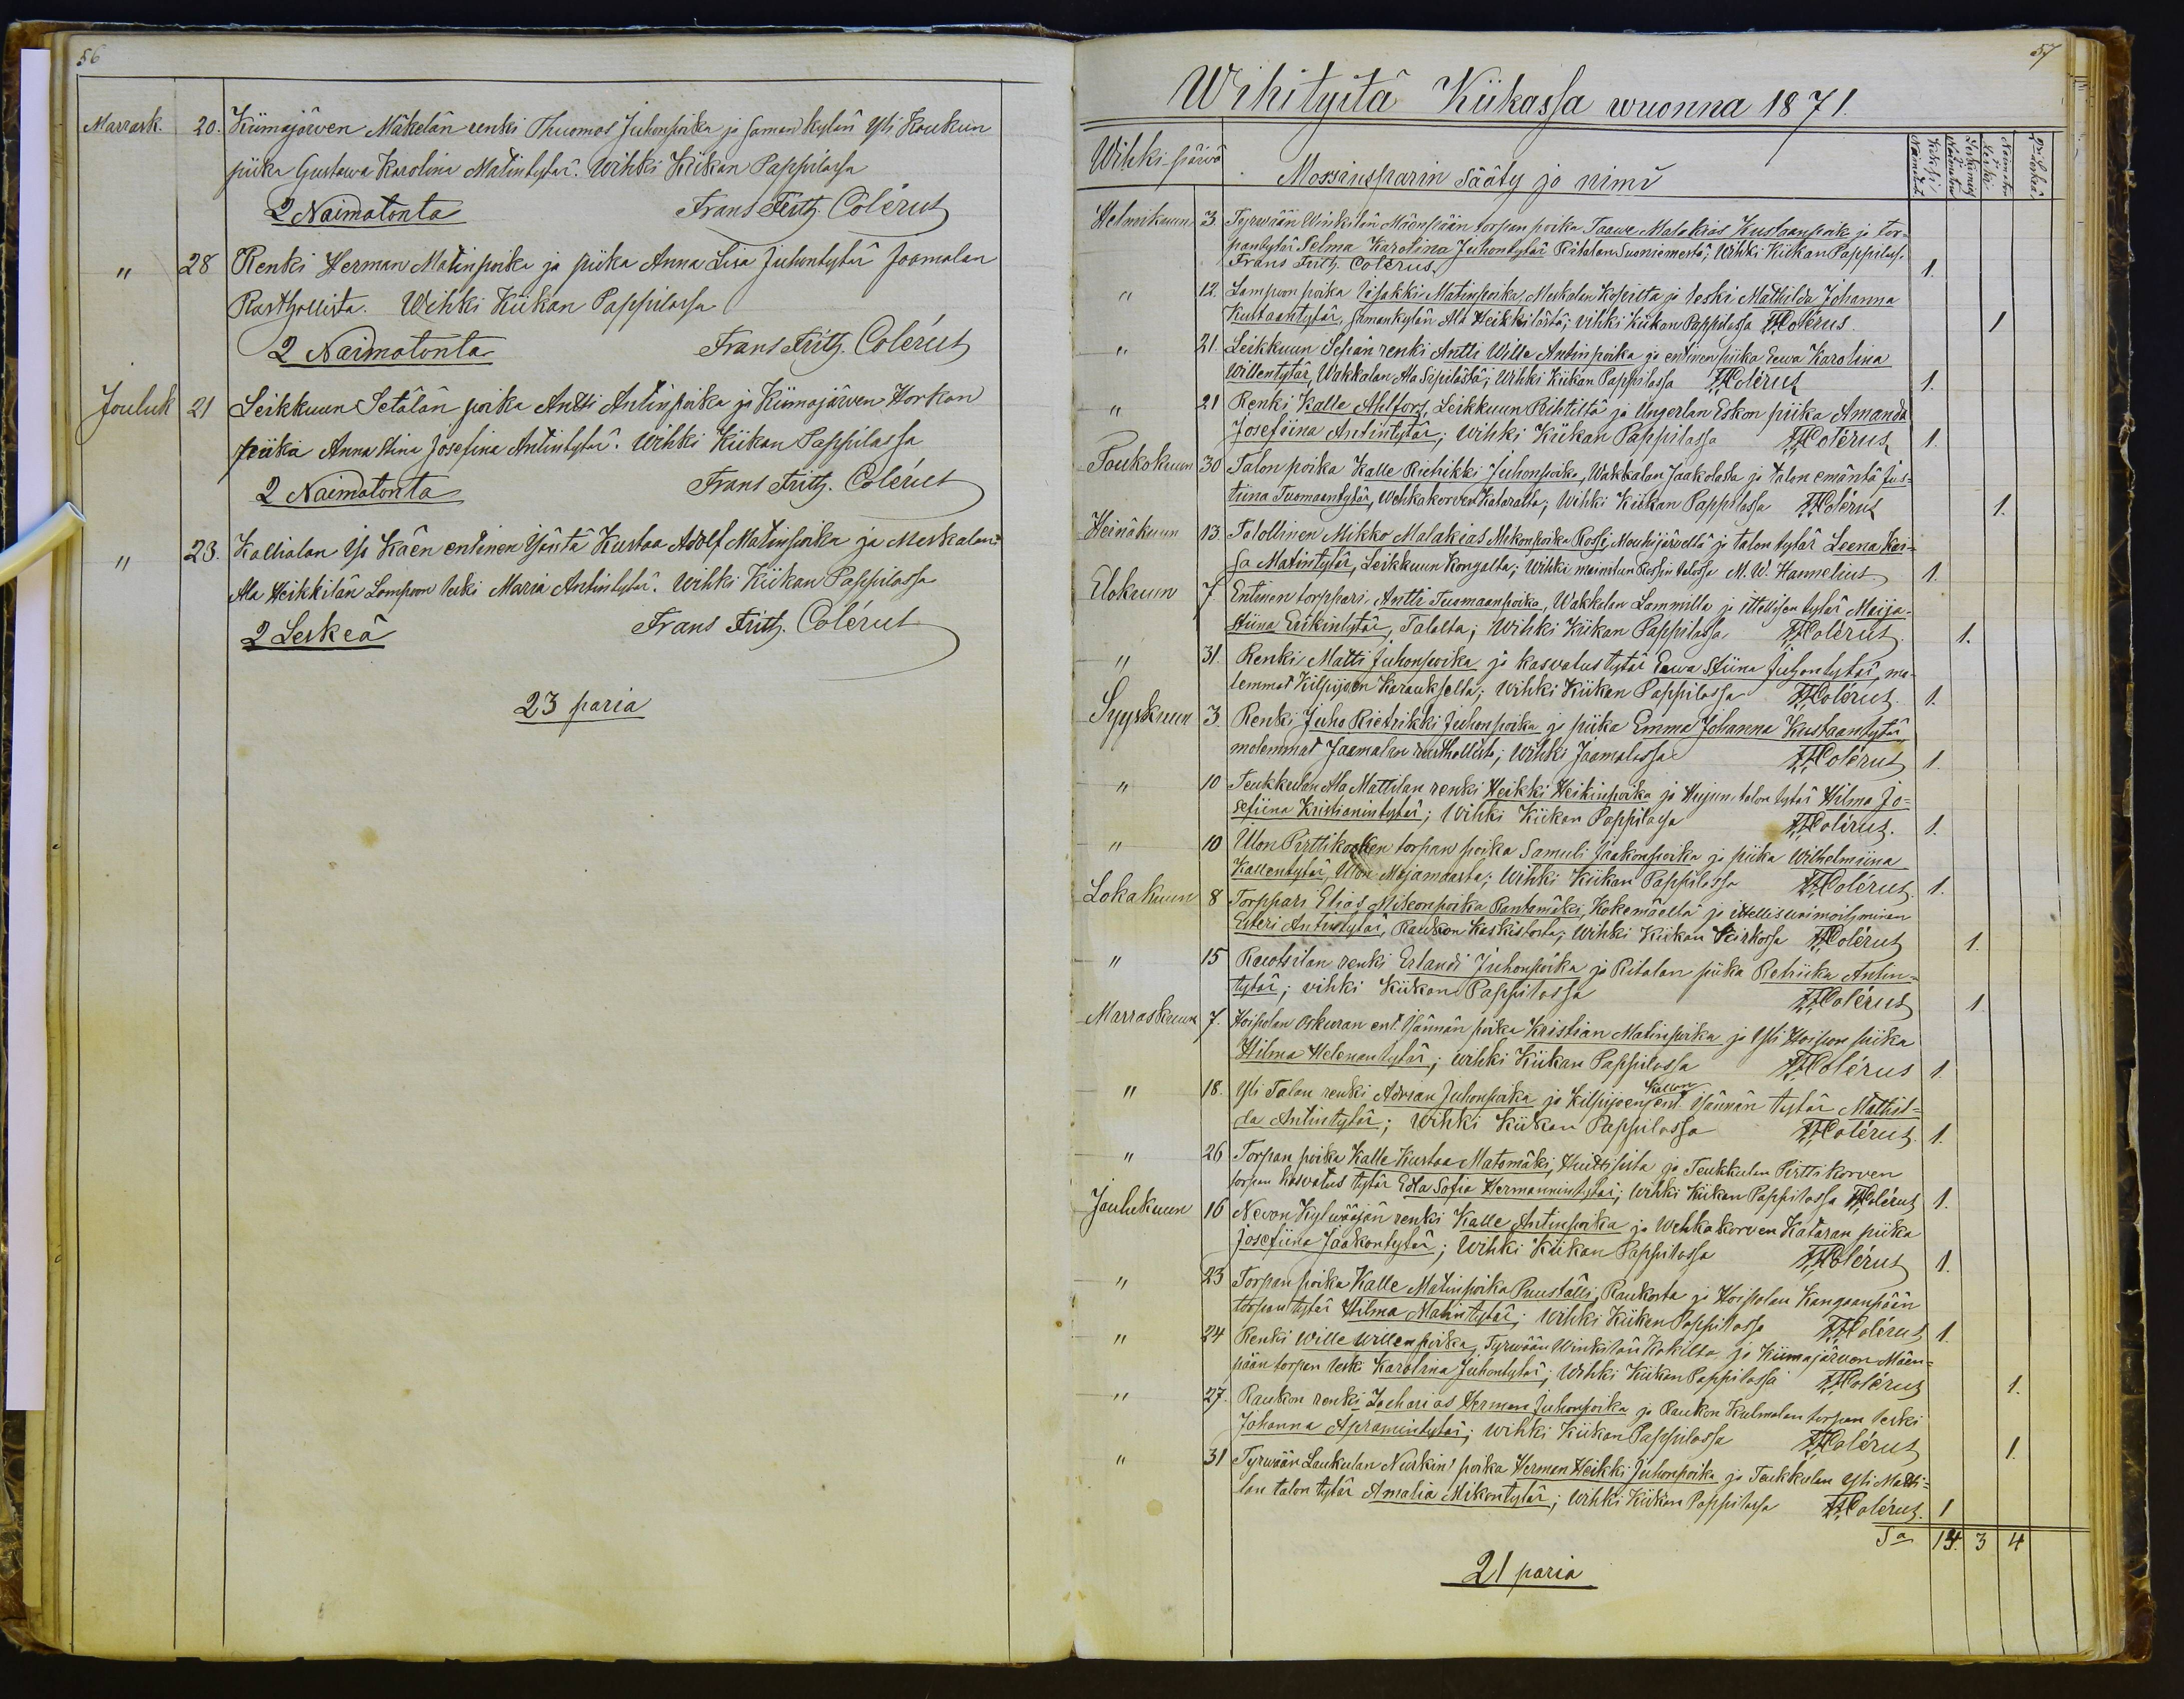 56
Marrask. 20. Kiimajärven Mäkelän renki Thuomas Juhonpoika ja saman kylän Yli Koukun
piika Gustawa Karolina Matintytär. Wihki Kiikan Pappilassa
2 Naimatonta Frans Frith. Colérus
" 28 Renki Herman Matinpoika ja piika Anna Lisa Juhontytär Jaamalan
Rusthollista. Wihki Kiikan Pappilassa
2 Naimatonta Frans Frith. Colérus
Jouluk 21 Leikkuun Setälän poika Antti Antinpoika ja Kiimajärven Horkan
piika Anna Stina Josefina Antintytär. Wihki Kiikan Pappilassa
2 Naimatonta Frans Frith. Colérus
" 23. Kallialan Yli Käen entinen Isäntä Kustaa Adolf Matinpoika ja Meskalan
Ala Heikkilän Lampoon leski Maria Antintytär. Wihki Kiikan Pappilassa
2 Leskeä Frans Frith. Colérus
23 paria
57
Wihityitä Kiikassa wuonna 1871.
Wihki-päivä Morsiusparin Sääty ja nimi
Helmikuun 3. Tyrwään Winkilän Mäenpään torpan poika Taawe Malakias Kustaanpoik. ja tor-
pantytär Selma Karolina Juhontytär Rätalan Suoniemestä; Wihki Kiikan Pappilas.
Frans Frith. Colérus. 1.
" 12. Lampoon poika Iisakki Matinpoika, Meskalan Kopilta ja leski Mathilda Johanna
Kustaantytär, samankylän Ala Heikkilästä; vihki Kiikan Pappilassa FFColérus. 1
" 21. Leikkuun Sepän renki Antti Wille Antinpoika ja entinen piika Eewa Karolina
Willentytär, Wakkalan Ala Sipilästä; Wihki Kiikan Pappilassa FFColérus 1.
" 21 Renki Kalle Ahlfors, Leikkuun Prihtiltä ja Ungerlan Eskon piika Amanda
Josefiina Antintytär; Wihki Kiikan Pappilassa FFColérus 1.
Toukokuun 30 Talon poika Kalle Rietrikki Juhonpoika, Wakkalan Jaakolasta ja talon emäntä Jus-
tiina Tuomaantytär, Wehkakorven Kataralta; Wihki Kiikan Pappilassa FFColérus 1.
Heinäkuun 13. Talollinen Mikko Malakias Mikonpoika Rossi, Mouhijärveltä ja talon tytär Leena Kai-
sa Matintytär, Leikkuun Kongalta; Wihki mainitun Rossin talossa M. W. Hannelius 1.
Elokuun 7. Entinen torppari Antti Tuomaanpoika, Wakkalan Lammilta ja ittellisen tytär Maija-
Stiina Erikintytär, Talalta; Wihki Kiikan Pappilassa FFColérus. 1.
" 31. Renki Matti Juhonpoika ja kasvatus tytär Eewa Stiina Juhontytär, mo-
lemmat Kilpijoen Karaukselta; Wihki Kiikan Pappilassa FFColérus. 1.
Syyskuun 3 Renki Juho Rietrikki Juhonpoika ja piika Emma Johanna Kustaantytär
molemmat Jaamalan rusthollista; Wihki Jaamalassa FFColérus 1.
" 10 Teukkulan Ala Mattilan renki Heikki Heikinpoika ja talon tytär Hilma Jo-
sefiina Kristianintytär; Wihki Kiikan Pappilassa FFColérus. 1.
" 10 Ulon Pirttikosken torpan poika Samuli Jaakonpoika ja piika Wilhelmiina
Kallentytär, Ulon Majamaasta; Wihki Kiikan Pappilassa FFColérus. 1.
Lokakuun 8 Torppari Elias Mikonpoika Rantamäki, Kokemäeltä ja
Esteri Antintytär, Raukon Kaskistosta; Wihki Kiikan Kirkossa FFColérus 1.
" 15 Rautsilan renki Erlandi Juhonpoika ja Ritalan piika Retriika Antin-
tytär; vihki Kiikan Pappilassa FFColérus 1
Marraskuun 7. Hoipolan Oskuran ent. Isännän poika Kristian Matinpoika ja Yli Hoipon piika
Hilma Helenantytär; wihki Kiikan Pappilassa FFColérus 1.
" 18. Yli Talan renki Adrian Juhonpoika ja Kilpijoen Kallon ent. Isännän tytär Mathil-
da Antintytär; Wihki Kiikan Pappilassa FFColérus. 1.
" 26 Torpan poika Kalle Kustaa Matomäki, Huittisista ja Teukkulan Pirttikorven
torpan kasvatus tytär Edla Sofia Hermannintytär; Wihki Kiikan Pappilassa FFColérus 1.
Joulukuun 16 Newon Kylwääjän renki Kalle Antinpoika ja Wehkakorven Kataran piika
Josefiina Jaakontytär; Wihki Kiikan Pappilassa FFColérus 1.
" 23 Torpan poika Kalle Matinpoika Puuställi, Raukosta ja Hoipolan Kangaanpään
torpantytär Hilma Matintytär; Wihki Kiikan Pappilassa FFColérus 1.
" 24 Renki Wille Willenpoika, Tyrwään Winkilän Kokilta ja Kiimajärven Mäen-
pään torpan leski Karolina Juhontytär; Wihki Kiikan Pappilassa FFColérus 1.
" 27. Raukon renki Zacharias Herman Juhonpoika ja Raukon Kulmalan torpan leski
Johanna Apramintytär; Wihki Kiikan Pappilassa FFColérus 1.
" 31 Tyrwään Laukulan Nuskin poika Herman Heikki Juhonpoika ja Teukkulan Yli Matti-
lan talon tytär Amalia Mikontytär; Wihki Kiikan Pappilassa FFColérus. 1
Sa 14. 3 4
21 paria